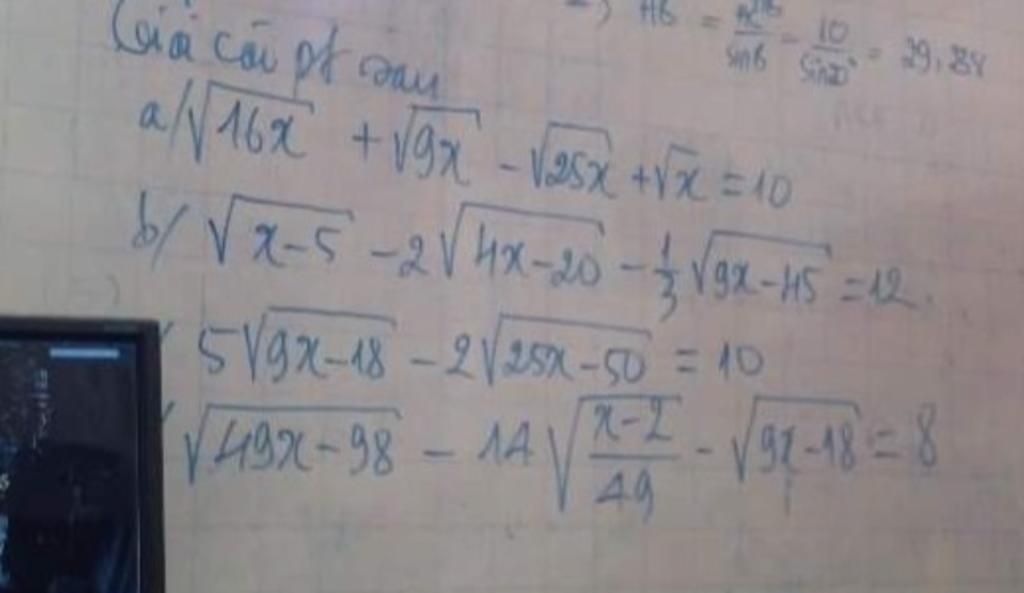 =) AB = / sin B = 10 / sin 20° = 29,234
Giải các pt sau
a/ √16x + √9x - √25x + √x = 10
b/ √x-5 - 2√4x-20 - 1/3 √9x-45 = 12.
5√9x-18 - 2√25x-50 = 10
√49x-98 - 14√x-2/49 - √9x-18 = 8